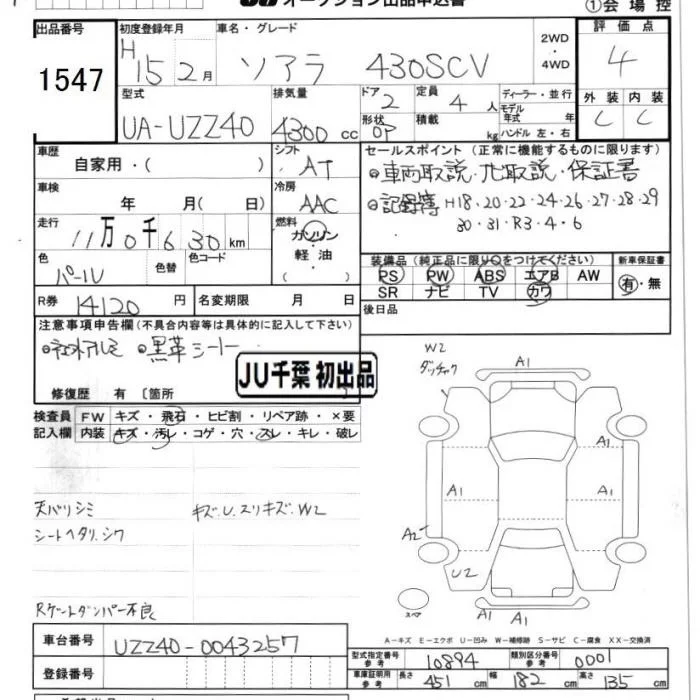 オークション出品申込書
①会場控
出品番号 初度登録年月 車名・グレード 2WD・4WD 評価点
1547 H15 2月 ソアラ 430SCV 4
型式 排気量 ドア 定員 ディーラー・並行 外装 内装
UA-UZZ40 4300cc 2 4人 モデル年式 年 C C
形状 OP 積載 kg ハンドル 左・右
車歴 自家用・( ) シフト AT セールスポイント(正常に機能するものに限ります)
車検 年 月(日) 冷房 AAC ◎車両取説・ナビ取説・保証書
走行 11万0千630km 燃料 ガソリン 軽油 ( ) ◎記録簿 H18・20・22・24・26・27・28・29
30・31・R3・4・6
色 パール 色替 色コード 装備品(純正品に限り○をつけてください) 新車保証書
PS PW ABS エアB AW 有・無
SR ナビ TV カワ
R券 14120円 名変期限 月 日 後日品
注意事項申告欄(不具合内容等は具体的に記入して下さい)
◎黒革シート
修復歴 有〔箇所
JU千葉 初出品
検査員記入欄 FW キズ・飛石・ヒビ割・リペア跡・×要
内装 キズ・汚レ・コゲ・穴・スレ・キレ・破レ
W2
ダッチャク
A1
A1
A1 A1 A1
A2
U2
A1 A1
スペア
天バリシミ キズ.U.スリキズ.W2
シートヘタリ.シワ
Rゲートダンパー不良
A-キズ E-エクボ U-凹み W-補修跡 S-サビ C-腐食 XX-交換済
車台番号 UZZ40-0043257
型式指定番号 参考 10894 類別区分番号 参考 0001
登録番号
車庫証明用 参考 長さ 451cm 幅 182cm 高さ 135cm